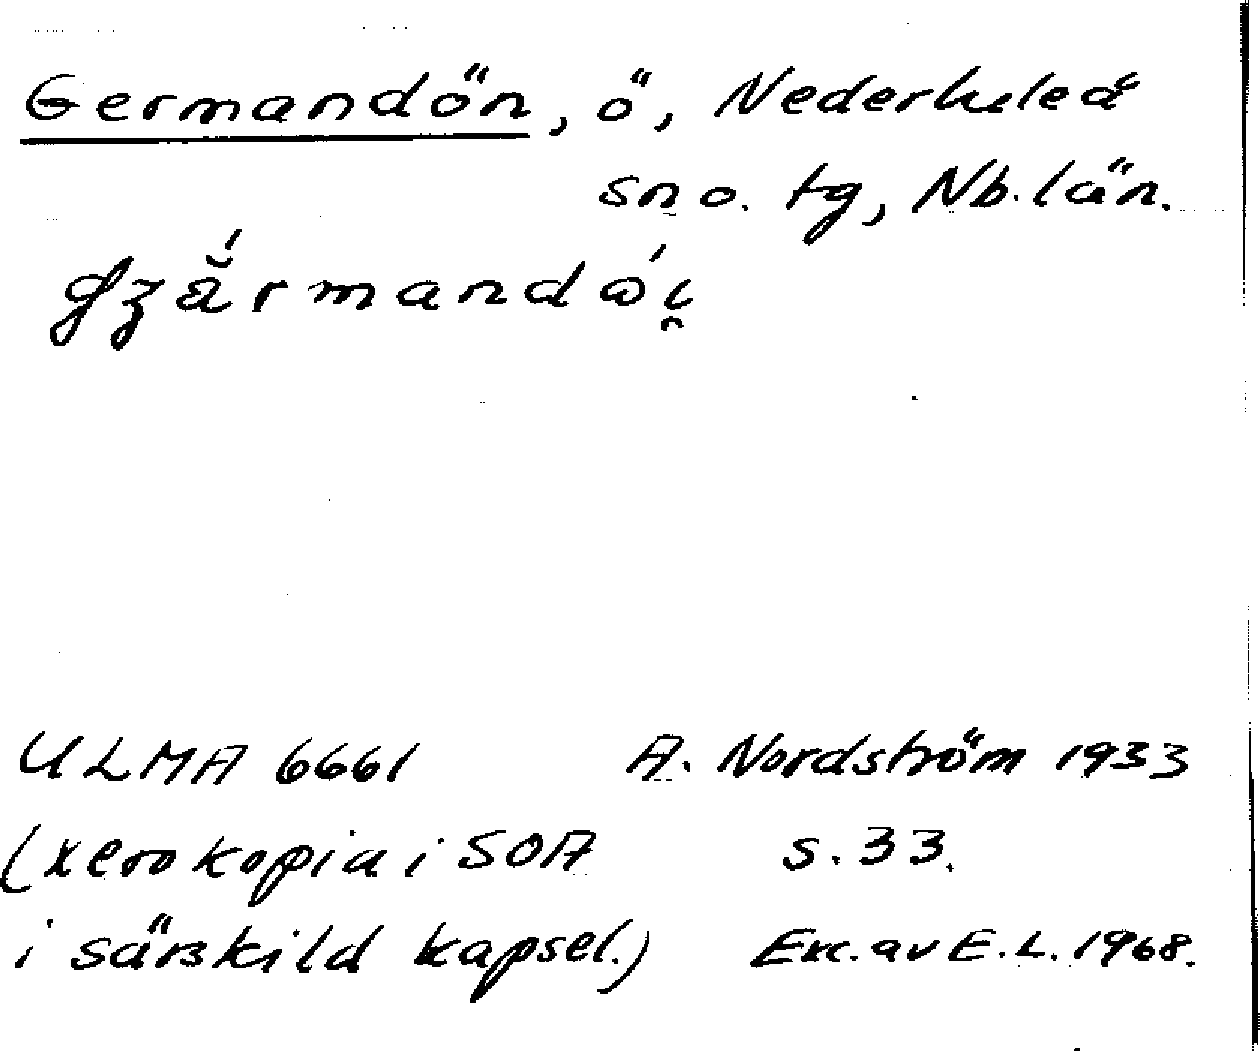 Germandön, ö, Nederluleå
sn o. tg, Nb. län.
ULMA 6661 A. Nordström 1933
(xerokopia i SOA s. 33.
i särskild kapsel.) Exc. av E. L. 1968.